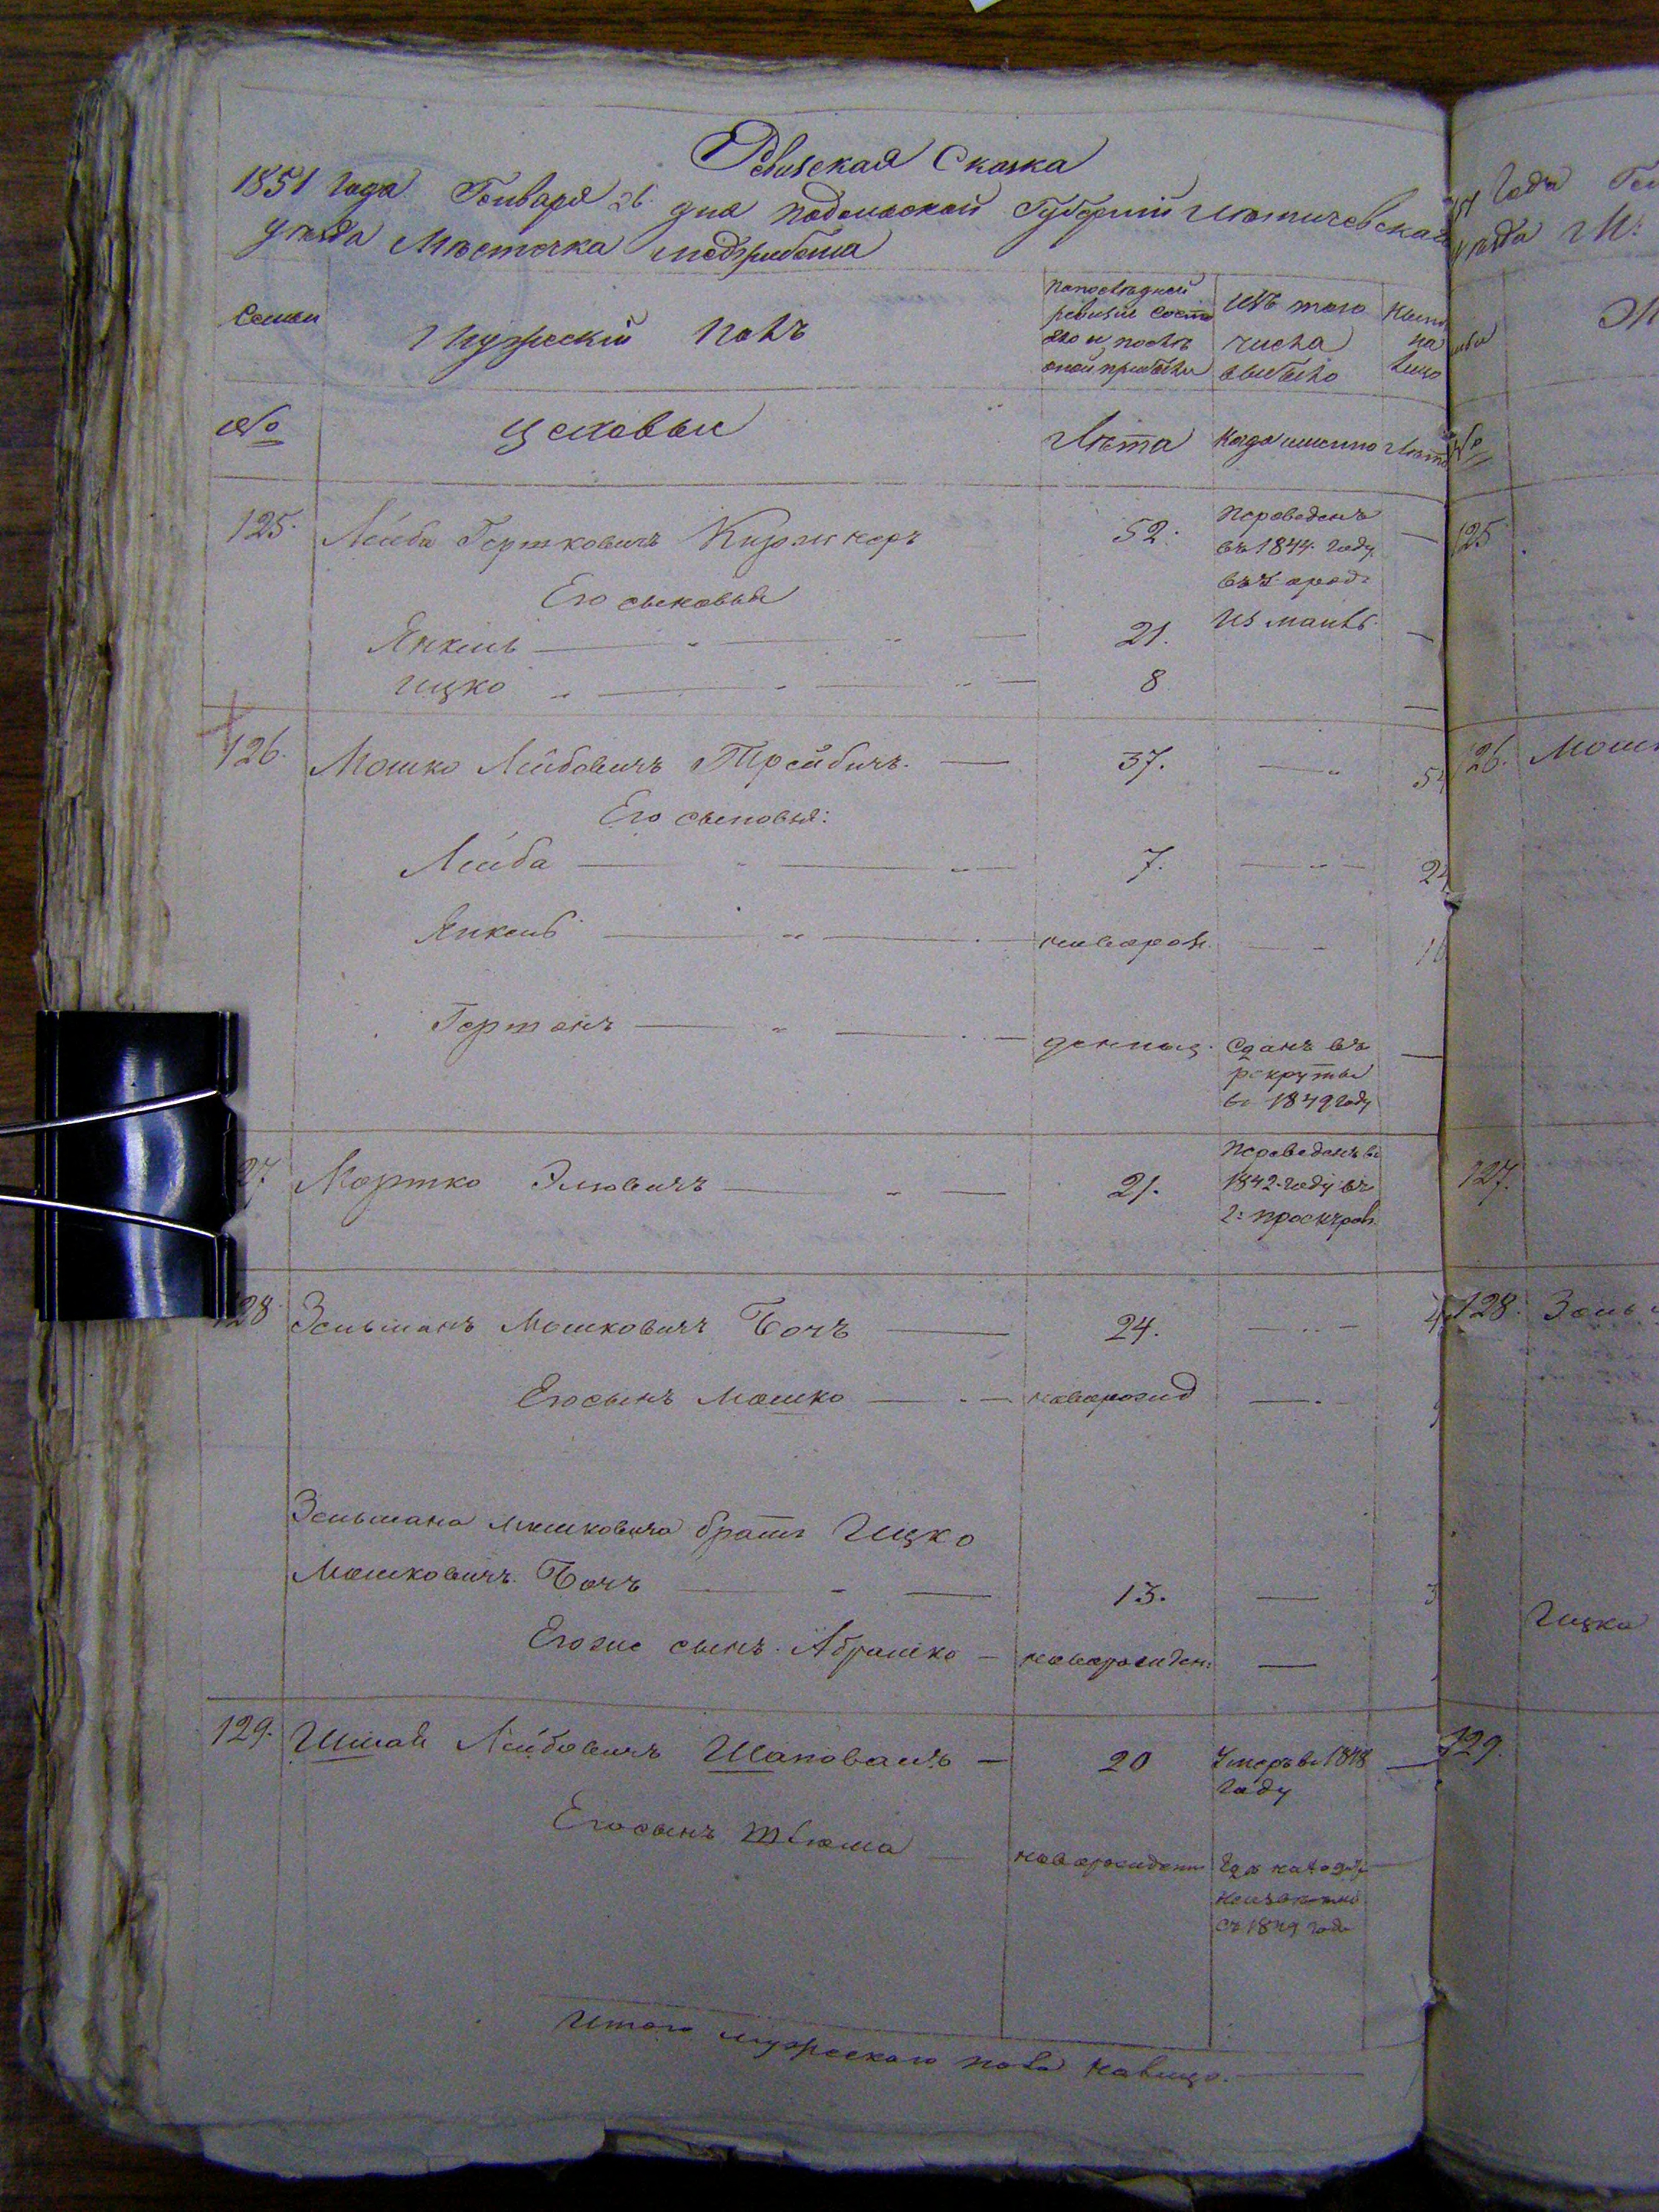 Ревизская Сказка
1851 года Генваря 26 дня Подольской Губернии Летичевскаго
уезда Местечка Меджибожа
Семьи
Мужеский Полъ
По последней
ревизии состо
яло и после
оной прибыло
Изъ того
числа
выбыло
Ныне
на
лицо
№
Цеховые
Лета
Когда именно
Лета
125.
Лейба Гершковичъ Киржнеръ
52.
Переведенъ
въ 1844 году
Его сыновья
Янкель
21.
Ицко
8
126.
Мошко Лейбовичъ Трейбичъ.
37.
Его сыновья:
Лейба
7.
Янкель
новорож.
Гершонъ
Сданъ въ
рекруты
въ 1849 году
27
Мортко Эльовичъ
21.
Переведенъ въ
1842 году въ
128
Зельманъ Мошковичъ Бочъ
24.
Его сынъ Мошко
новорожд
Зельмана Мошковича братъ Ицко
Мошковичъ Бочъ
13.
Его же сынъ Абрашко
новорожден:
129.
Лейбовичъ Шаповалъ
20
Умеръ въ 1848
году
Его сынъ
новорожден
неизвестно
съ 1849 года
Итого мужескаго пола налицо.
1851 года
уезда М:
№
125
126.
Мошк
127.
128.
Зель
Ицка
129.